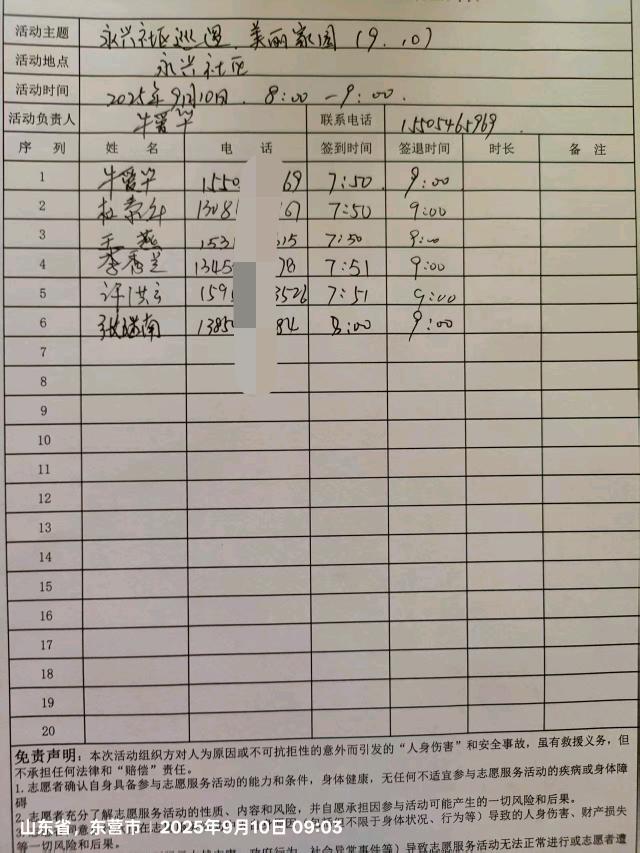 活动主题 永兴社区巡逻、美丽家园(9.10)
活动地点 永兴社区
活动时间 2025年9月10日. 8:00-9:00.
活动负责人 牛爱华 联系电话 15505465969
序 列 姓 名 电 话 签到时间 签退时间 时长 备 注
1 牛爱华 1550 69 7:50 9:00
2 1308 67 7:50 9:00
3 王燕 1531 515 7:50 9:00
4 李秀兰 1345 78 7:51 9:00
5 许洪 159 3526 7:51 9:00
6 张 南 1385 84 8:00 9:00
7
8
9
10
11
12
13
14
15
16
17
18
19
20
免责声明:本次活动组织方对人为原因或不可抗拒性的意外而引发的“人身伤害”和安全事故,虽有救援义务,但
不承担任何法律和“赔偿”责任。
1. 志愿者确认自身具备参与志愿服务活动的能力和条件,身体健康,无任何不适宜参与志愿服务活动的疾病或身体障
碍
2. 志愿者充分了解志愿服务活动的性质、内容和风险,并自愿承担因参与活动可能产生的一切风险和后果。
不限于身体状况、行为等)导致的人身伤害、财产损失
山东省,东营市 2025年9月10日 09:03
等一切风险和后果。
社会异常事件等)导致志愿服务活动无法正常进行或志愿者遭